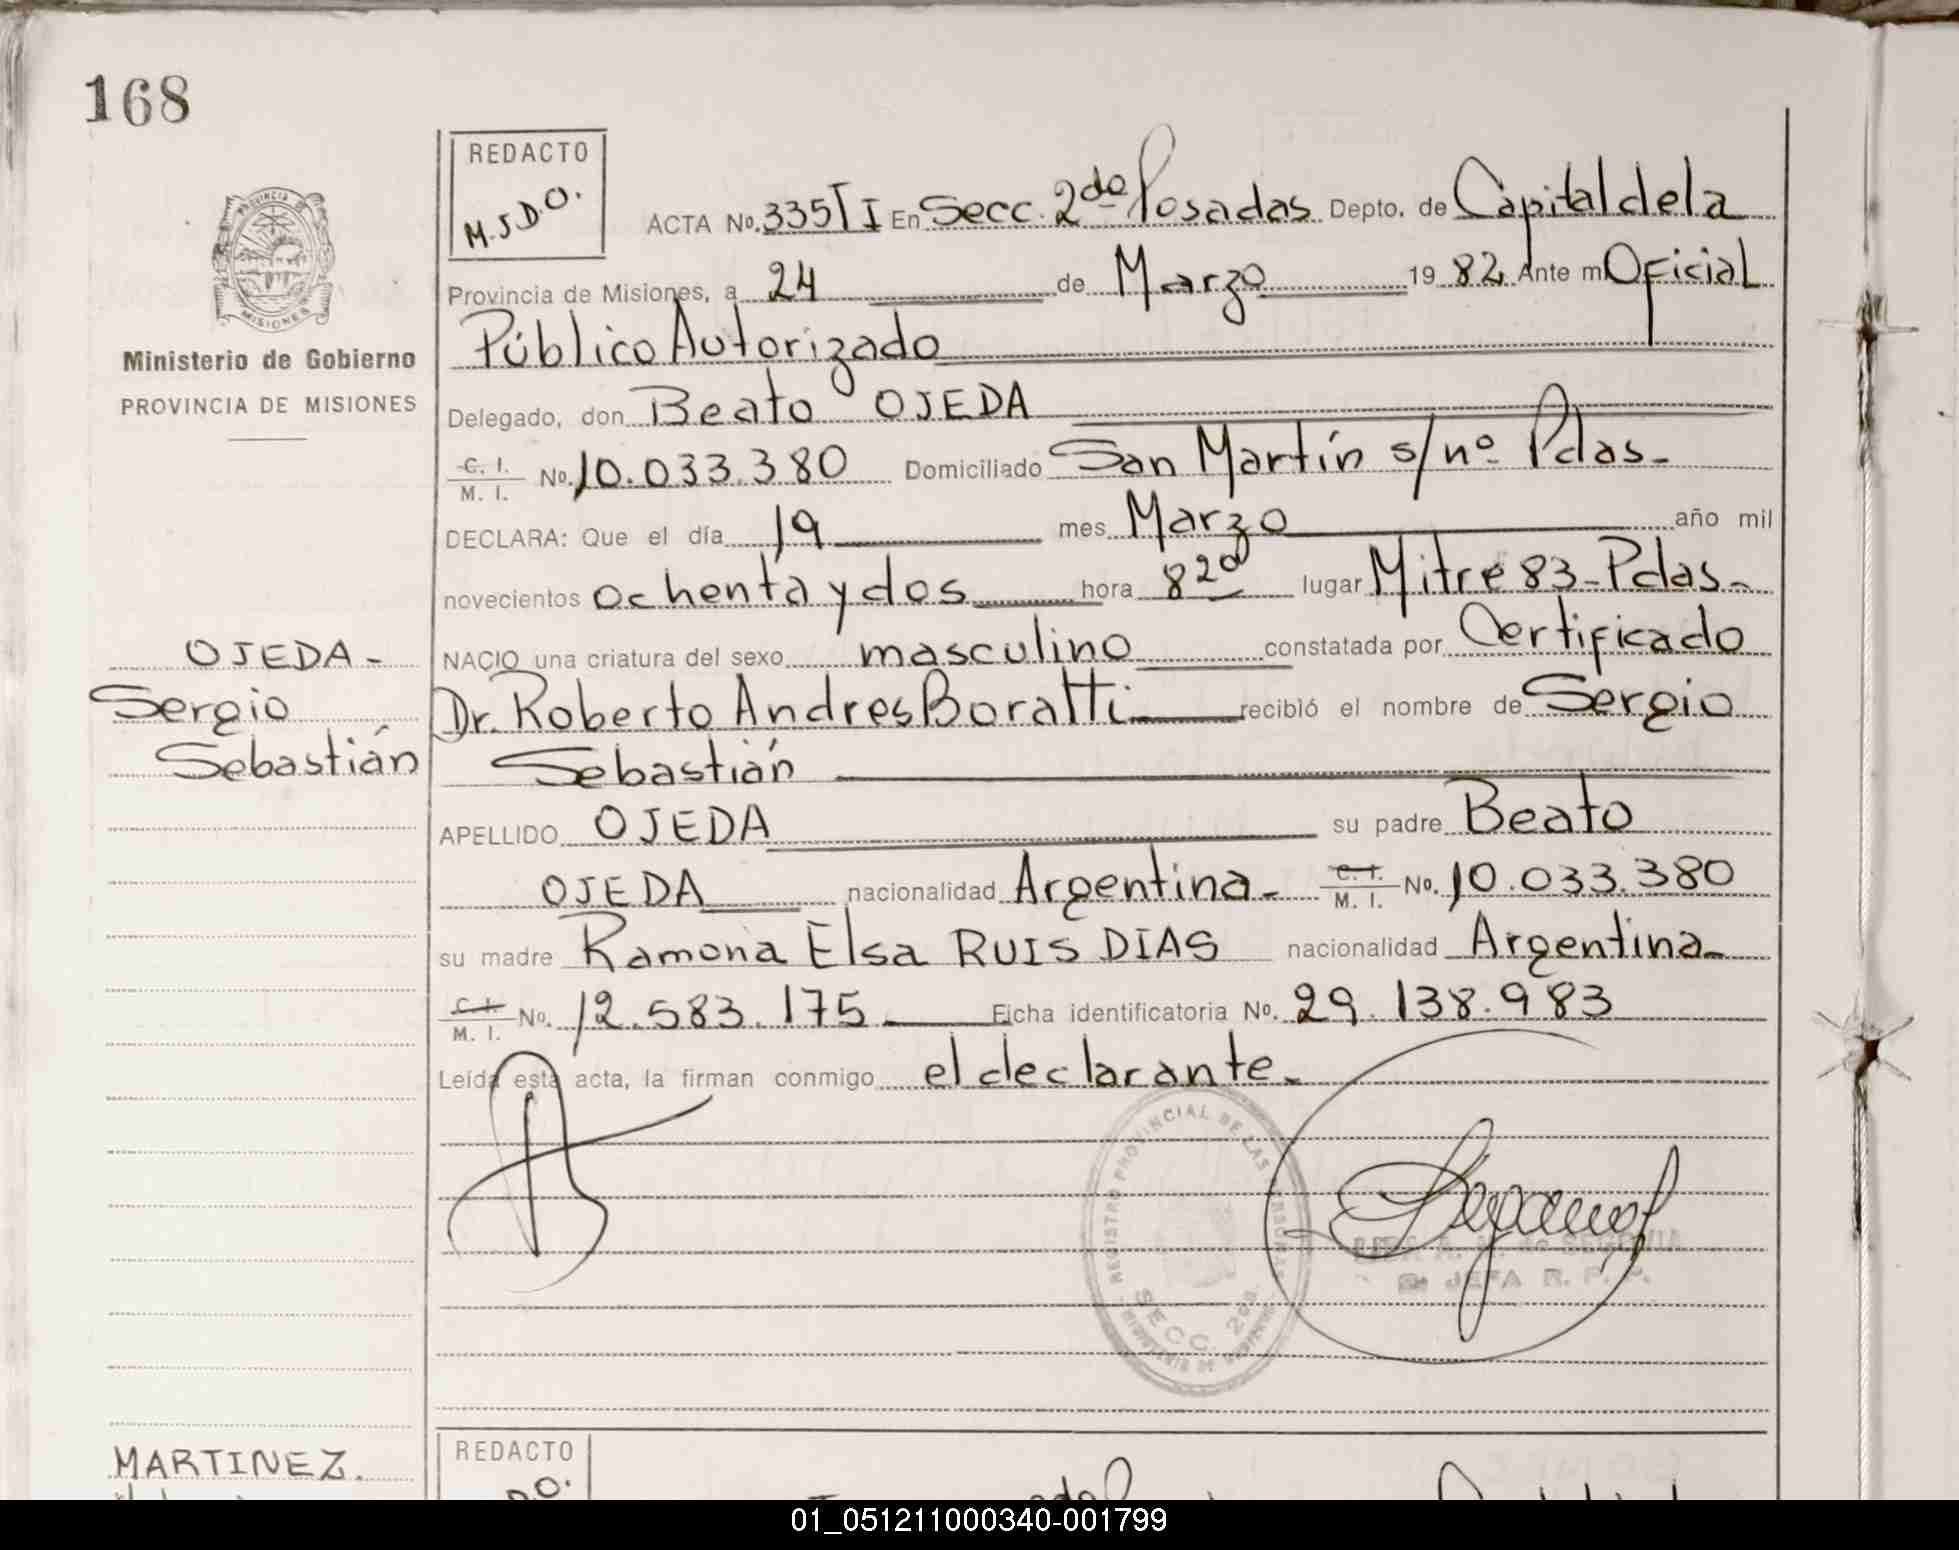 168
REDACTO
M.J.D.O.
PROVINCIA DE
MISIONES
Ministerio de Gobierno
PROVINCIA DE MISIONES
ACTA No. 335 T I En Secc. 2da Posadas Depto. de Capital de la
Provincia de Misiones, a 24 de Marzo 19 82 Ante mi Oficial
Público Autorizado
Delegado, don Beato OJEDA
C. I. / M. I. No. 10.033.380 Domiciliado San Martín s/nº Pdas.
DECLARA: Que el día 19 mes Marzo año mil
novecientos ochenta y dos hora 820 lugar Mitre 83 - Pdas -
OJEDA -
Sergio
Sebastián
NACIO una criatura del sexo masculino constatada por Certificado
Dr. Roberto Andres Boratti recibió el nombre de Sergio
Sebastián
APELLIDO OJEDA su padre Beato
OJEDA nacionalidad Argentina - C. I. / M. I. No. 10.033.380
su madre Ramona Elsa RUIS DIAS nacionalidad Argentina -
C. I. / M. I. No. 12.583.175 Ficha identificatoria No. 29.138.983
Leída esta acta, la firman conmigo el declarante.
REGISTRO PROVINCIAL DE LAS PERSONAS
SECC. 2da.
JEFA R. P. P.
MARTINEZ.
REDACTO
D.O.
01_051211000340-001799